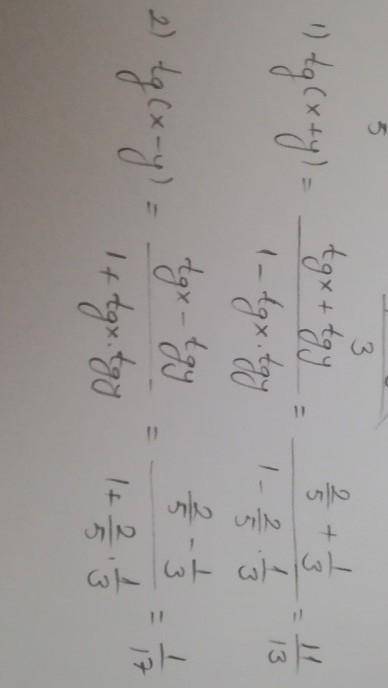 5
3
1) tg(x+y) = \frac{tgx + tgy}{1 - tgx·tgy} = \frac{\frac{2}{5} + \frac{1}{3}}{1 - \frac{2}{5}·\frac{1}{3}} = \frac{11}{13}
2) tg(x-y) = \frac{tgx - tgy}{1 + tgx·tgy} = \frac{\frac{2}{5} - \frac{1}{3}}{1 + \frac{2}{5}·\frac{1}{3}} = \frac{1}{17}